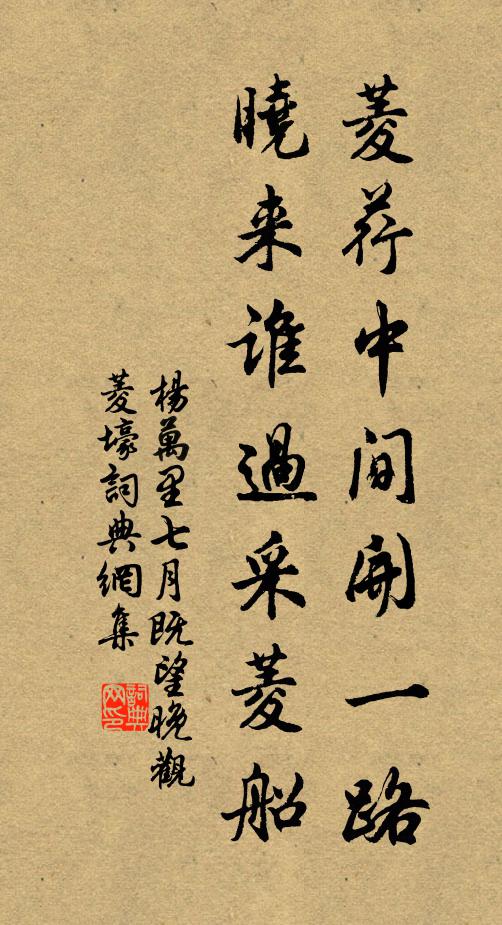 菱荇中間開一路
曉来誰過采菱船
楊萬里七月既望晚觀
菱壕詞典網集
詞典网印